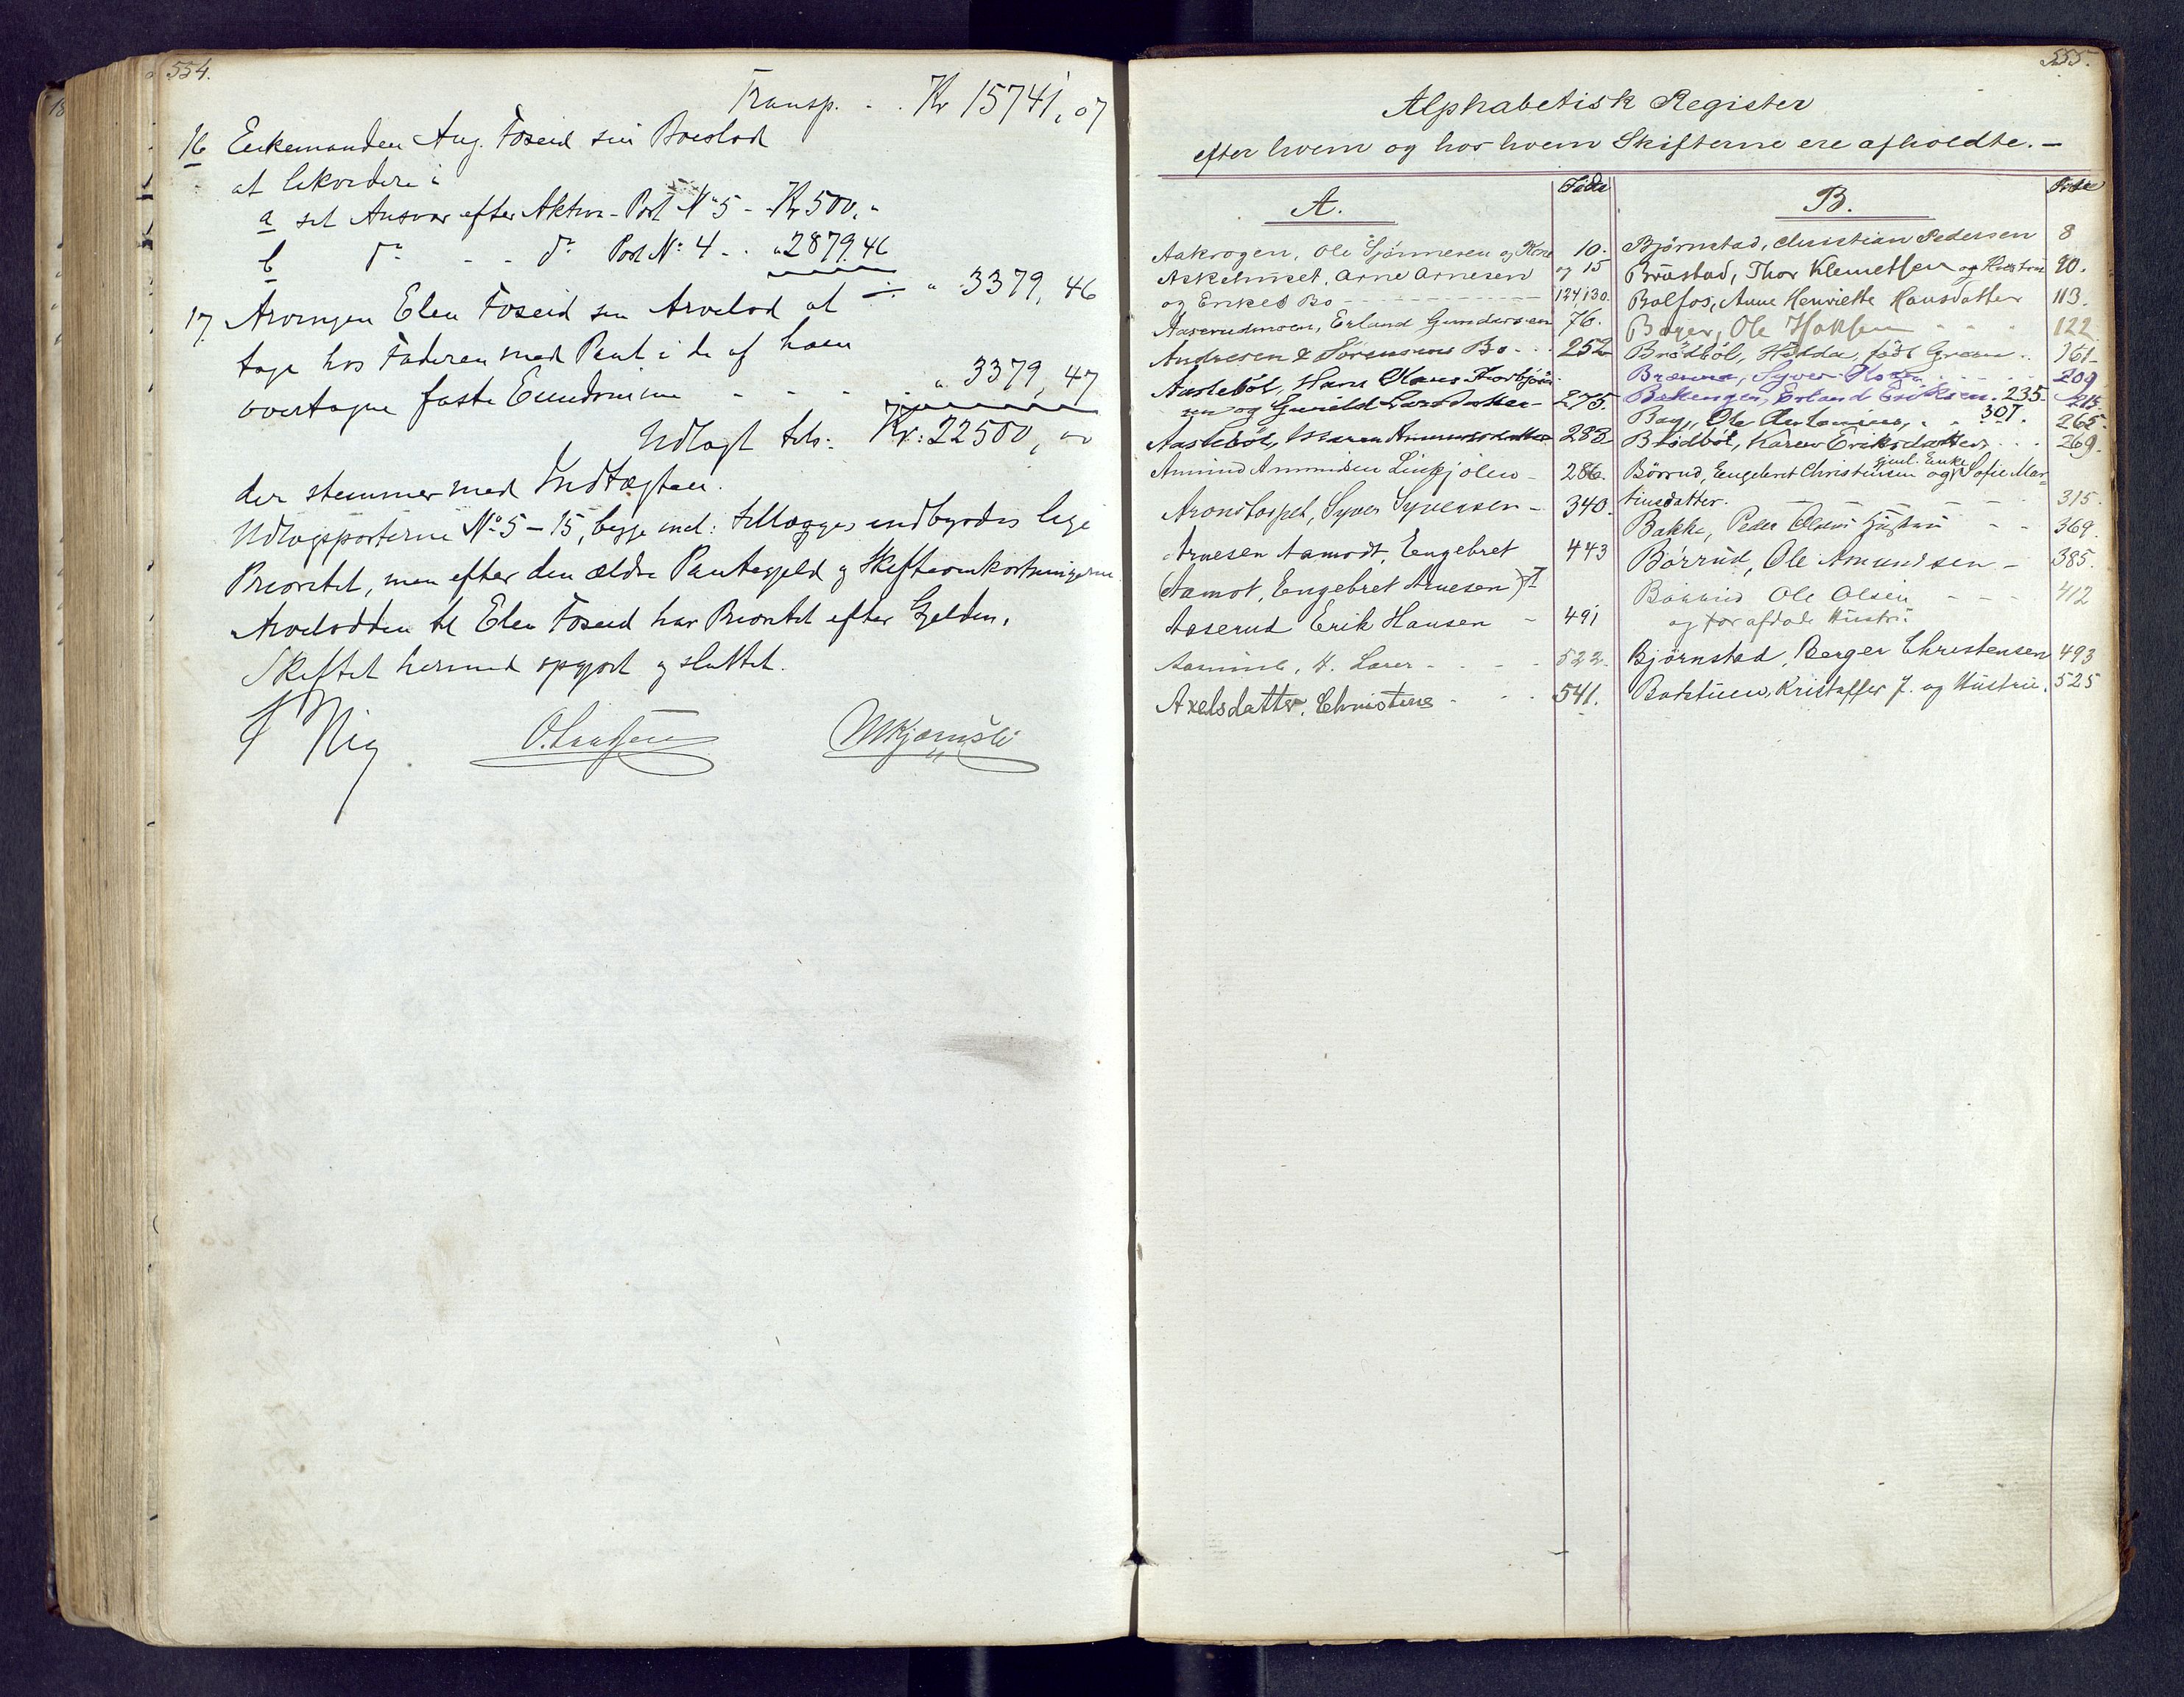 554.
Transp. - . Kr 15741,07
16 Enkemanden Aug. Foseid sin Boeslod
at likvidere i
a sit Ansvar efter Aktiv-Post No 5 - Kr 500,"
b do - - do Post No: 4 - . " 2879.46
÷ " 3379,46
17 Arvingen Elen Foseid sin Arvelod at
tage hos Faderen med Pant i de af ham
overtagne faste Eiendomme - - - " 3379,47
Udlagt tils: Kr: 22500,00
der stemmer med Indtægten.
Udlægsposterne No 5 - 15, begge incl: tillægges indbyrdes lige
Prioritet, men efter den ældre Pantegjeld og Skifteomkostningerne.
Arvelodden til Elen Foseid har Prioritet efter Gjelden.
Skiftet hermed opgjort og sluttet.
555.
Alphabetisk Register
efter hvem og hos hvem Skifterne ere afholdte. -
A. Side
Aakrogen, Ole Gjönnesen og Kone 10.
Askehuset, Arne Arnesen og 15
og Enkes Bo - - - 124,130.
Aaserudmoen, Erland Gundersen 76.
Andresen & Sörensens Bo - . . 252
Aasleböl, Hans Olaus Thorbjörn-
sen og Gunild Larsdatter - 275.
Aasleböl, Maren Amundsdatter 283.
Amund Amundsen Linkjölen - 286.
Aronstorpet, Syver Syversen - 340.
Arnesen Aamodt, Engebret 443
(Aamot, Engebret Arnesen)
Aaserud Erik Hansen - 491
H. Larsen - - - 522.
Axelsdatter, Christine - - . 541.
B. Side
Björnstad, Christian Pedersen 8
Bröstad, Thor Klemetsen og Hustru 90.
Bolfos, Anne Henriette Hansdatter 113.
Bager, Ole - - - 122
Brödböl, Hilda, född . . 161.
Syver 209
Bekengen, Erland Eriksen. 235. 215.
Bag, Ole Antonius, . . 307. 265.
Brödböl, Karen Eriksdatter . . . 269.
Börrud, Engebret Christiansen og Gjenl. Enke Sofie Mar-
tinsdatter. - - - 315.
Bakke, Peder Olsens Hustru - - 369.
Börrud, Ole Amundsen - 385.
Börrud Ole Olsen - - - 412
og før afdöde Hustru
Björnstad, Berger Christensen 493
Kristoffer J. og Hustru. 525